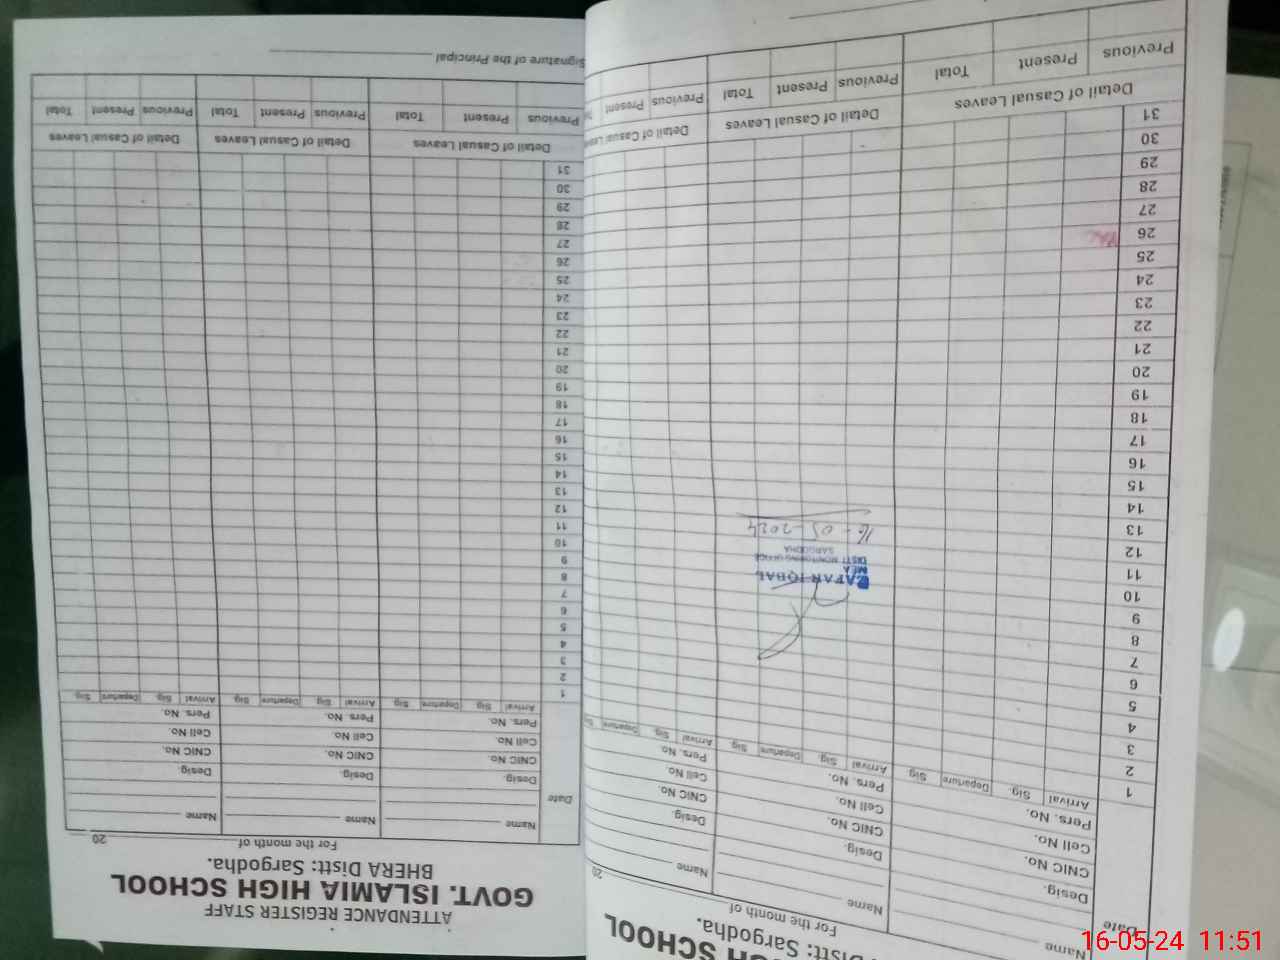 ATTENDANCE REGISTER STAFF
GOVT. ISLAMIA HIGH SCHOOL
BHERA Distt: Sargodha.
For the month of 20
Date Name Name Name
Desig. Desig. Desig.
CNIC No. CNIC No. CNIC No.
Cell No. Cell No. Cell No.
Pers. No. Pers. No. Pers. No.
Arrival Sig. Departure Sig. Arrival Sig. Departure Sig. Arrival Sig. Departure Sig.
1
2
3
4
5
6
7
8
9
10
11
12
13
14
15
16
17
18
19
20
21
22
23
24
25
26
27
28
29
30
31
Detail of Casual Leaves Detail of Casual Leaves Detail of Casual Leaves
Previous Present Total Previous Present Total Previous Present Total
Signature of the Principal
SCHOOL
Distt: Sargodha.
For the month of 20
Date Name Name Name
Desig. Desig. Desig.
CNIC No. CNIC No. CNIC No.
Cell No. Cell No. Cell No.
Pers. No. Pers. No. Pers. No.
Arrival Sig. Departure Sig. Arrival Sig. Departure Sig. Arrival Sig. Departure
1
2
3
4
5
6
7
8
9
10
11
12
13
14
15
16
17
18
19
20
21
22
23
24
25
26
27
28
29
30
31
ZAFAR IQBAL
MEA
DISTT MONITORING OFFICE
SARGODHA
16-05-2024
Detail of Casual Leaves Detail of Casual Leaves Detail of Casual Leaves
Previous Present Total Previous Present Total Previous Present
16-05-24 11:51